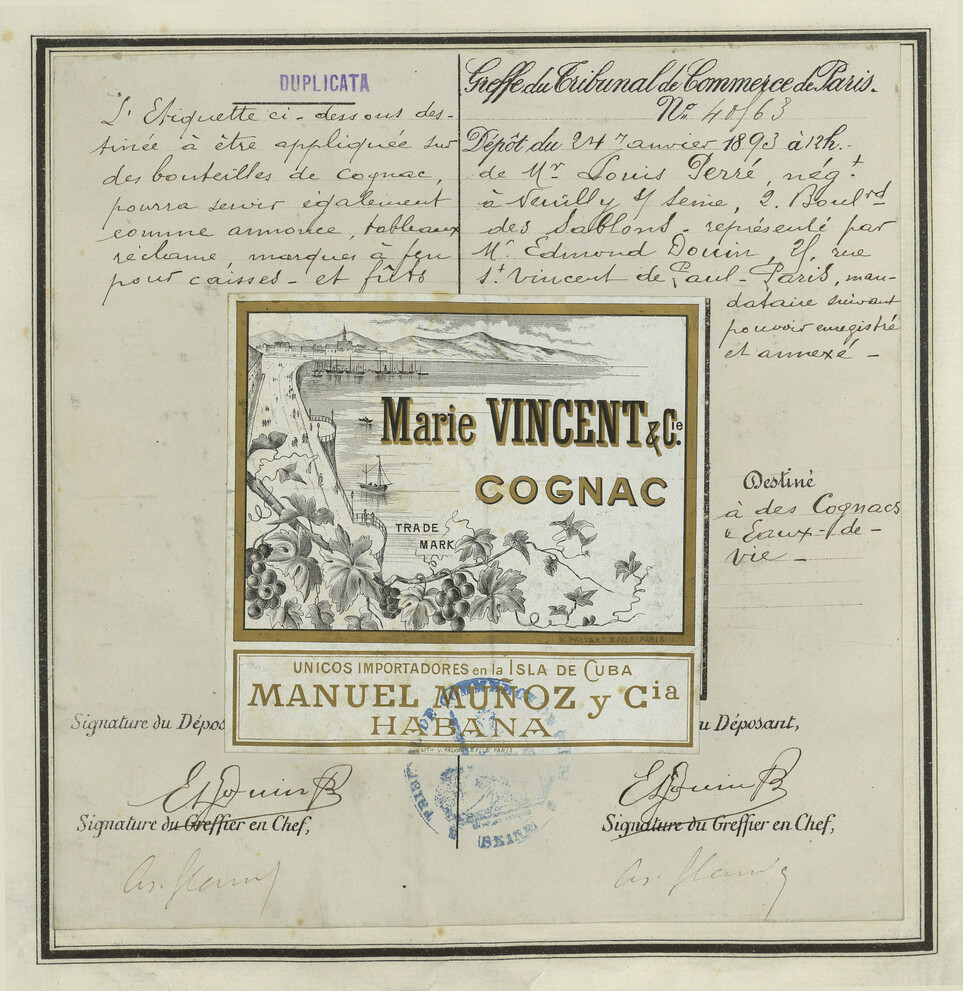 DUPLICATA
L'Etiquette ci-dessous des-
tinée à être appliquée sur
des bouteilles de Cognac,
pourra servir également
comme annonce, tableaux
réclame, marques à feu
pour caisses - et fûts
Greffe du Tribunal de Commerce de Paris.
N° 40163
Dépôt du 24 Janvier 1893 à 12h.
de Mr Louis Perré, négt
à Neuilly s/ Seine, 2. Boulrd
des Sablons - représenté par
Mr Edmond Douin, rue
St Vincent de Paul - Paris, man-
dataire suivant
pouvoir enregistré
et annexé -
Marie VINCENT & Cie.
COGNAC
TRADE
MARK
V. PALYART & FILS. PARIS
Destiné
à des Cognacs
& Eaux-de-
vie -
UNICOS IMPORTADORES en la ISLA DE CUBA
MANUEL MUÑOZ y Cia
HABANA
LITH. V. PALYART & FILS PARIS.
Signature du Dépos
u Déposant,
EDouin
EDouin
DE COMMERCE
PARIS
(SEINE)
Signature du Greffier en Chef,
Signature du Greffier en Chef,